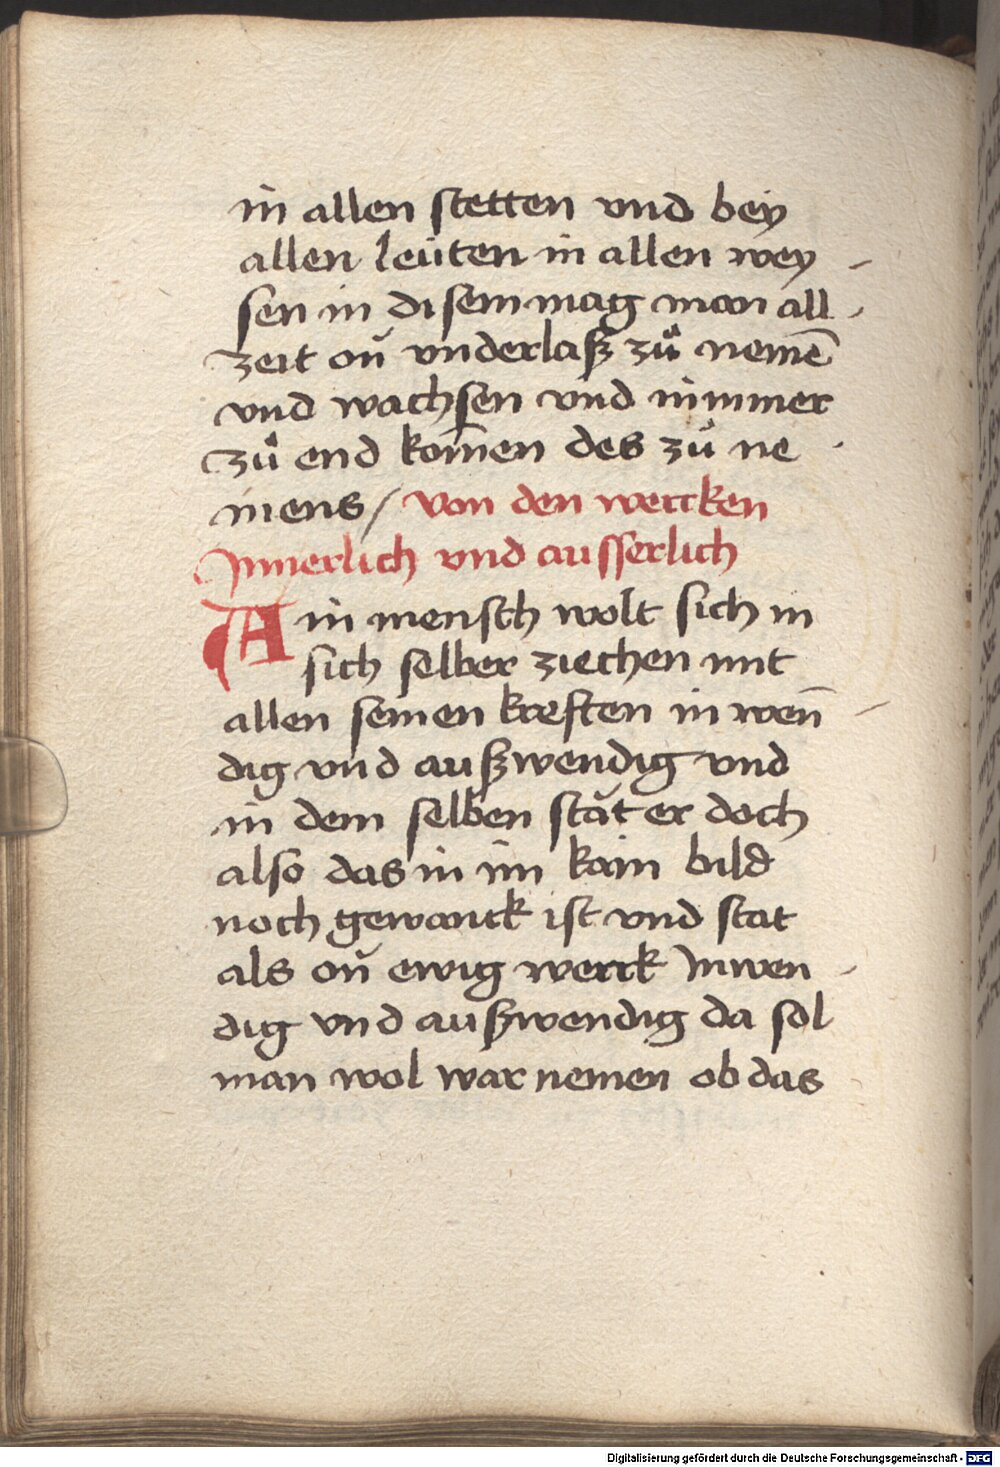 in allen stetten vnd bey
allen leüten in allen wey -
sen in disem mag man all -
zeit on̄ vnderlaß zů nemē
vnd wachsen vnd nimmer
zů end kom̄en des zů ne -
mens / von den wercken
Jnnerlich vnd ausserlich
Ain mensch wolt sich in
sich selber ziechen mit
allen seinen kreften in wen̄ -
dig vnd außwendig vnd
in dem selben stat er doch
also das in im kain bild
noch gewanck ist vnd stat
als on̄ ewig werck Jnwen -
dig vnd außwendig da sol
man wol war nemen ob das
Digitalisierung gefördert durch die Deutsche Forschungsgemeinschaft - DFG